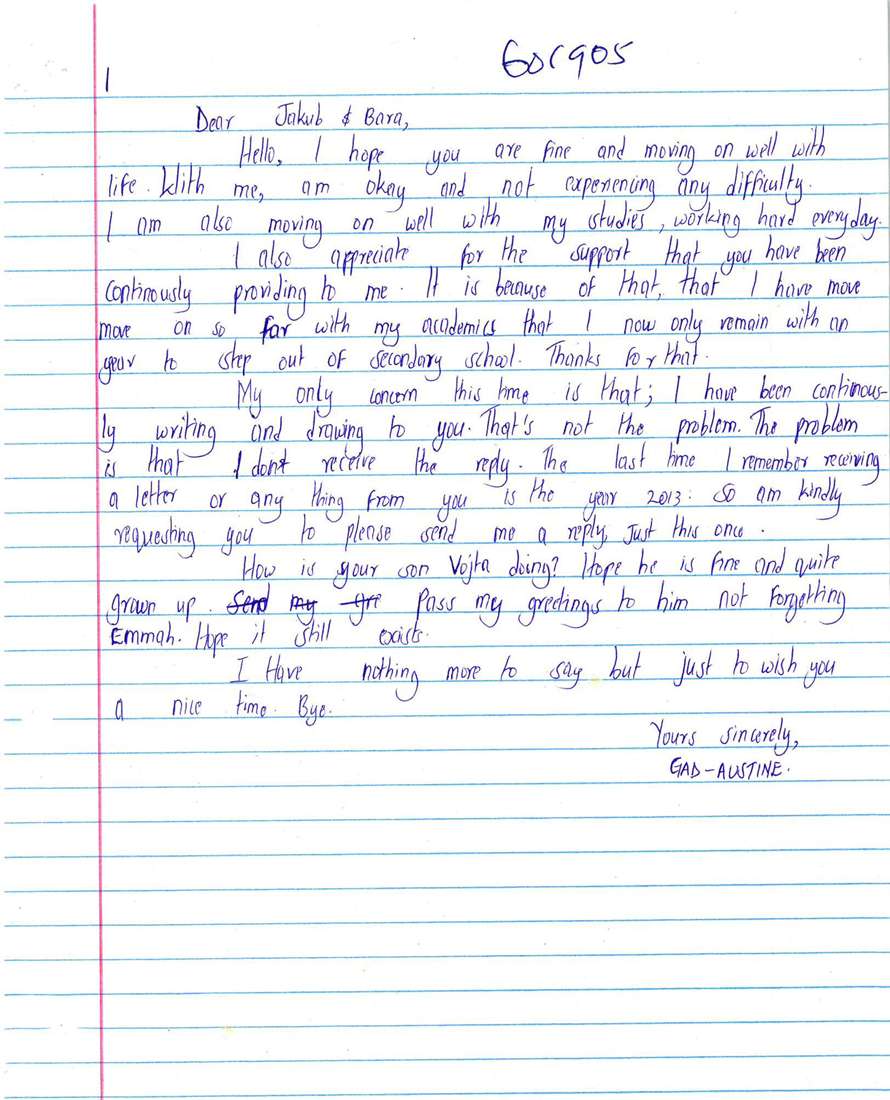 60C905
1
Dear Jakub & Bara,
Hello, I hope you are fine and moving on well with
life. With me, am okay and not experiencing any difficulty.
I am also moving on well with my studies, working hard everyday.
I also appreciate for the support that you have been
continously providing to me. It is because of that, that I have move
move on so far with my academics that I now only remain with an
year to step out of secondary school. Thanks for that.
My only concern this time is that; I have been continous-
ly writing and drawing to you. That's not the problem. The problem
is that I dont receive the reply. The last time I remember receiving
a letter or any thing from you is the year 2013. So am kindly
requesting you to please send me a reply, just this once.
How is your son Vojta doing? Hope he is fine and quite
grown up. Send my gre Pass my greetings to him not forgetting
Emmah. Hope it still exists.
I Have nothing more to say but just to wish you
a nice time. Bye.
Yours sincerely,
GAD-AUSTINE.